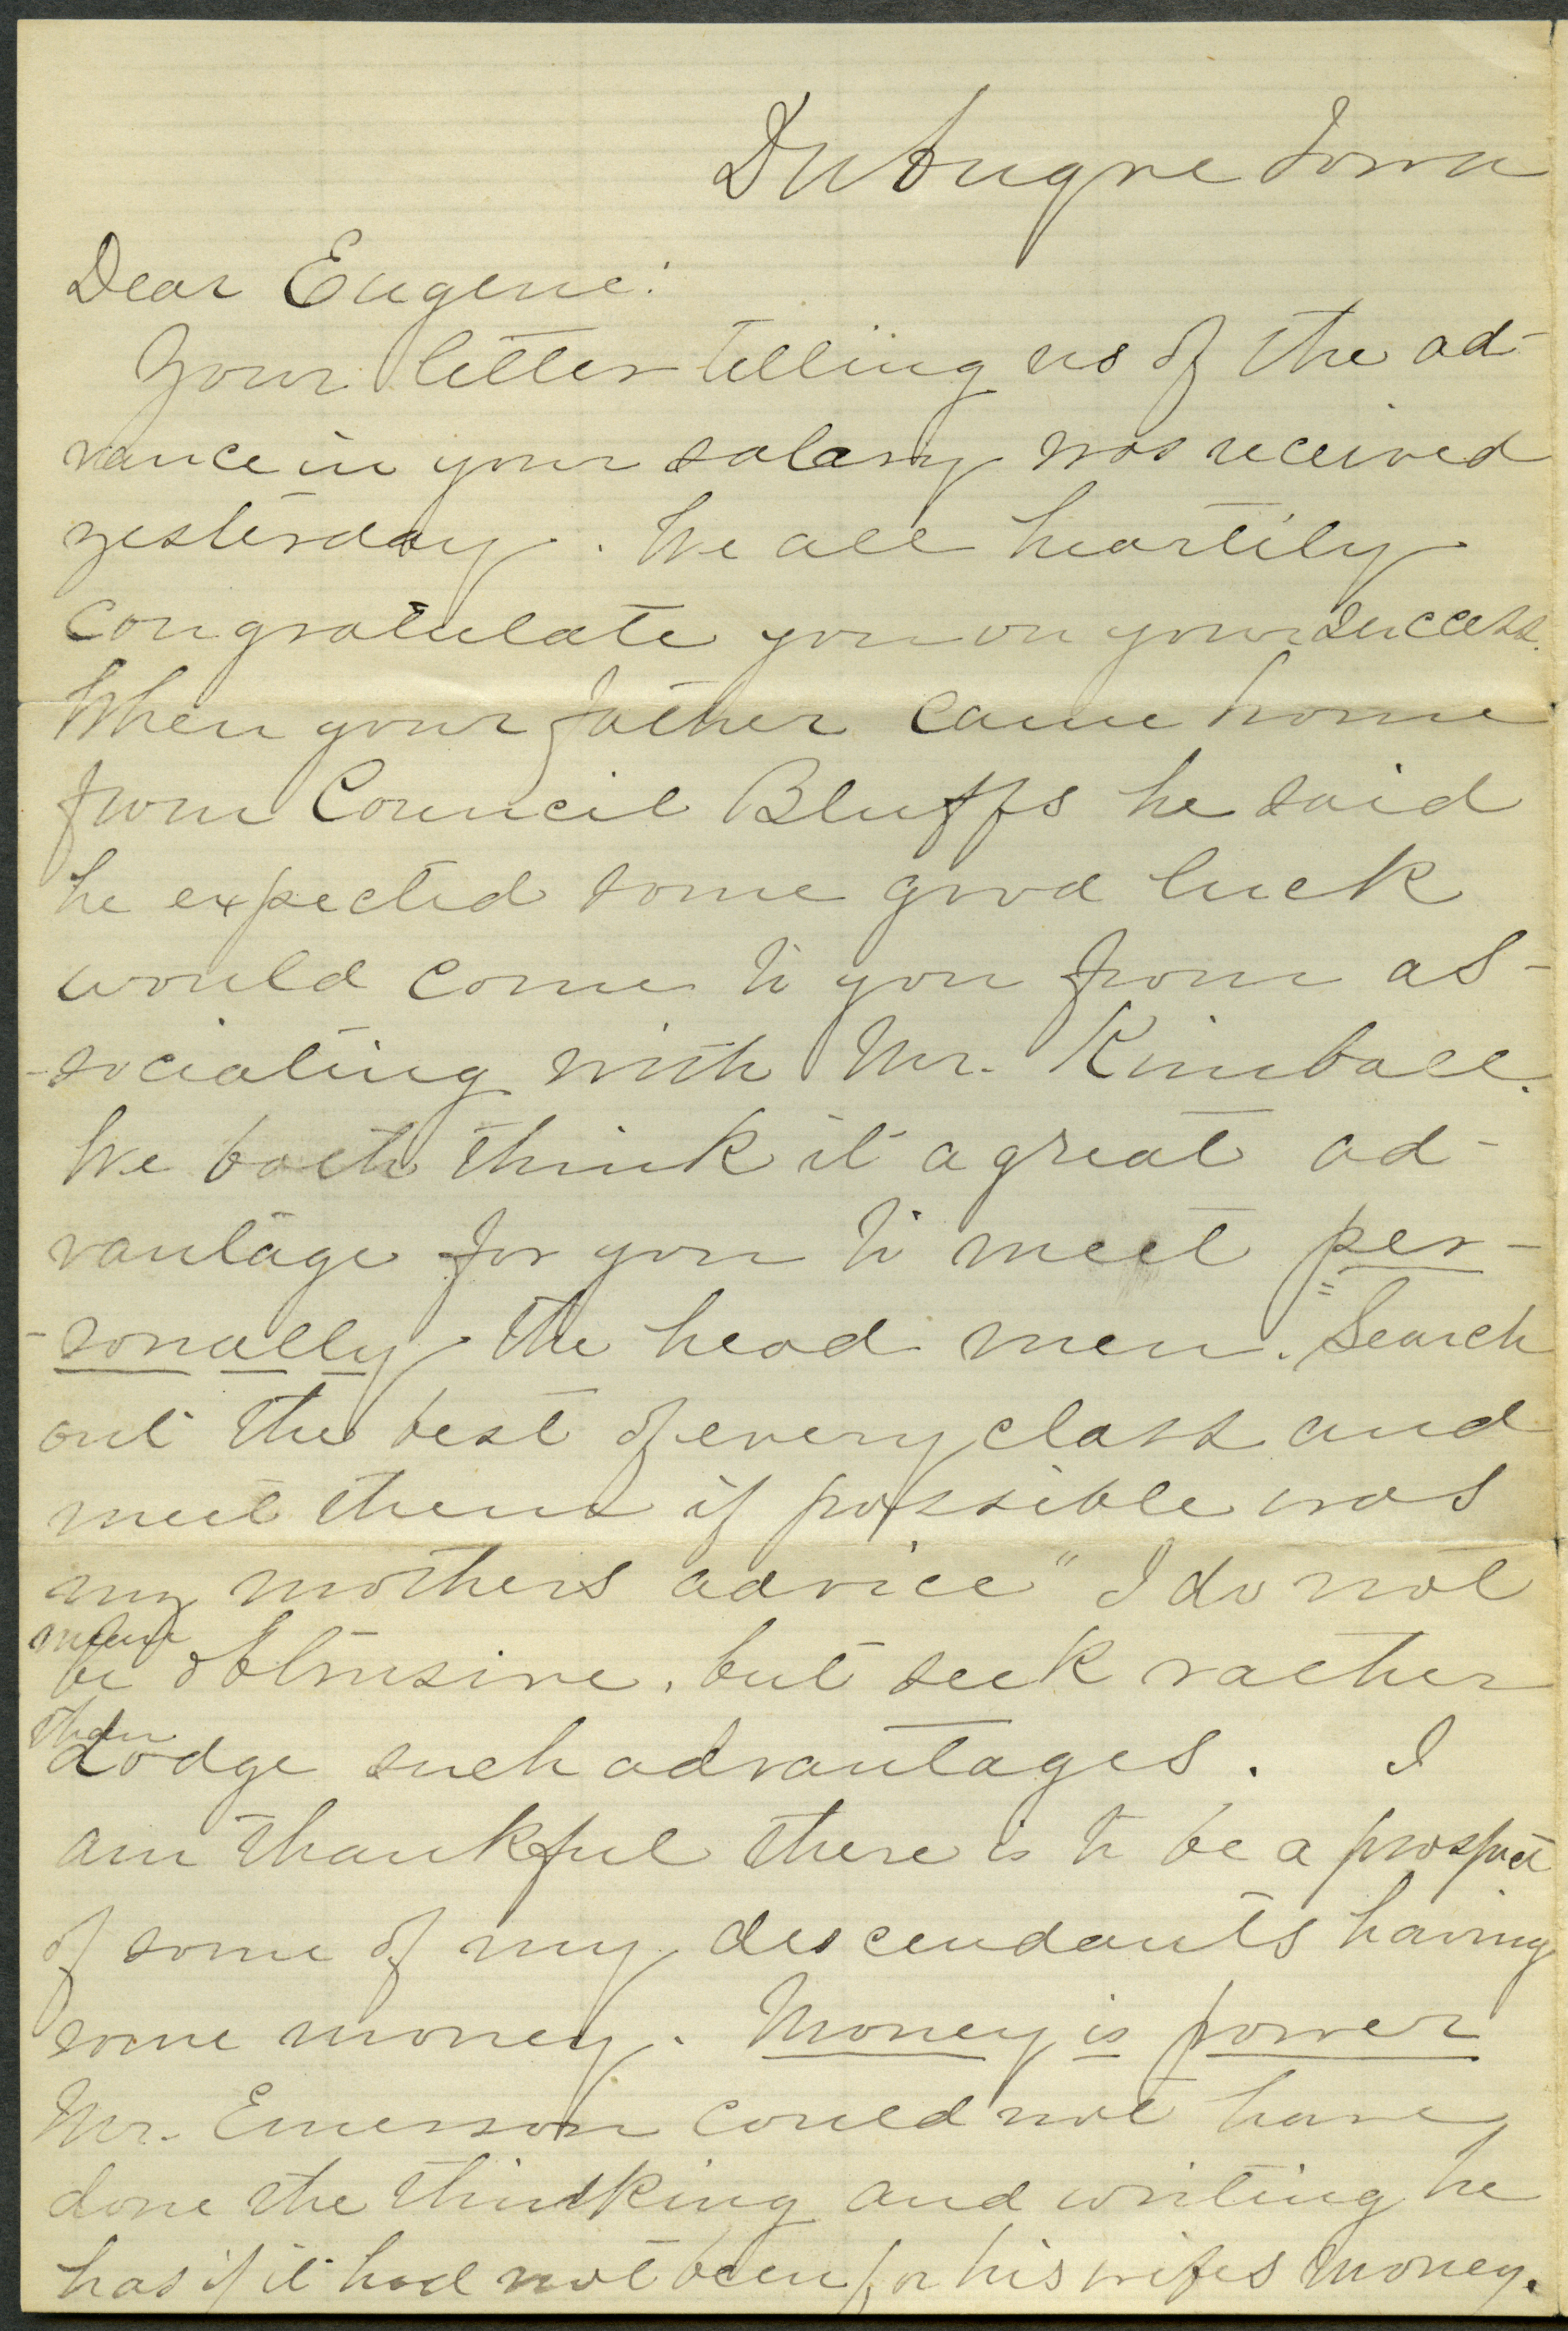 Dubuque Iowa
Dear Eugene:
Your letter telling us of the ad-
vance in your salary was received
yesterday. We all heartily
congratulate you on your success.
When your father came home
from Council Bluffs he said
he expected some good luck
would come to you from as-
-sociating with Mr. Kimball.
We both think it a great ad-
vantage for you to meet per-
-sonally the head men. Search
out the best of every class and
meet them if possible was
my mothers advice" I do not
mean
be obtrusive, but seek rather
than
dodge such advantages. I
am thankful there is to be a prospect
of some of my descendants having
some money. Money is power
Mr. Emerson could not have
done the thinking and writing he
has if it had not been for his wifes money.